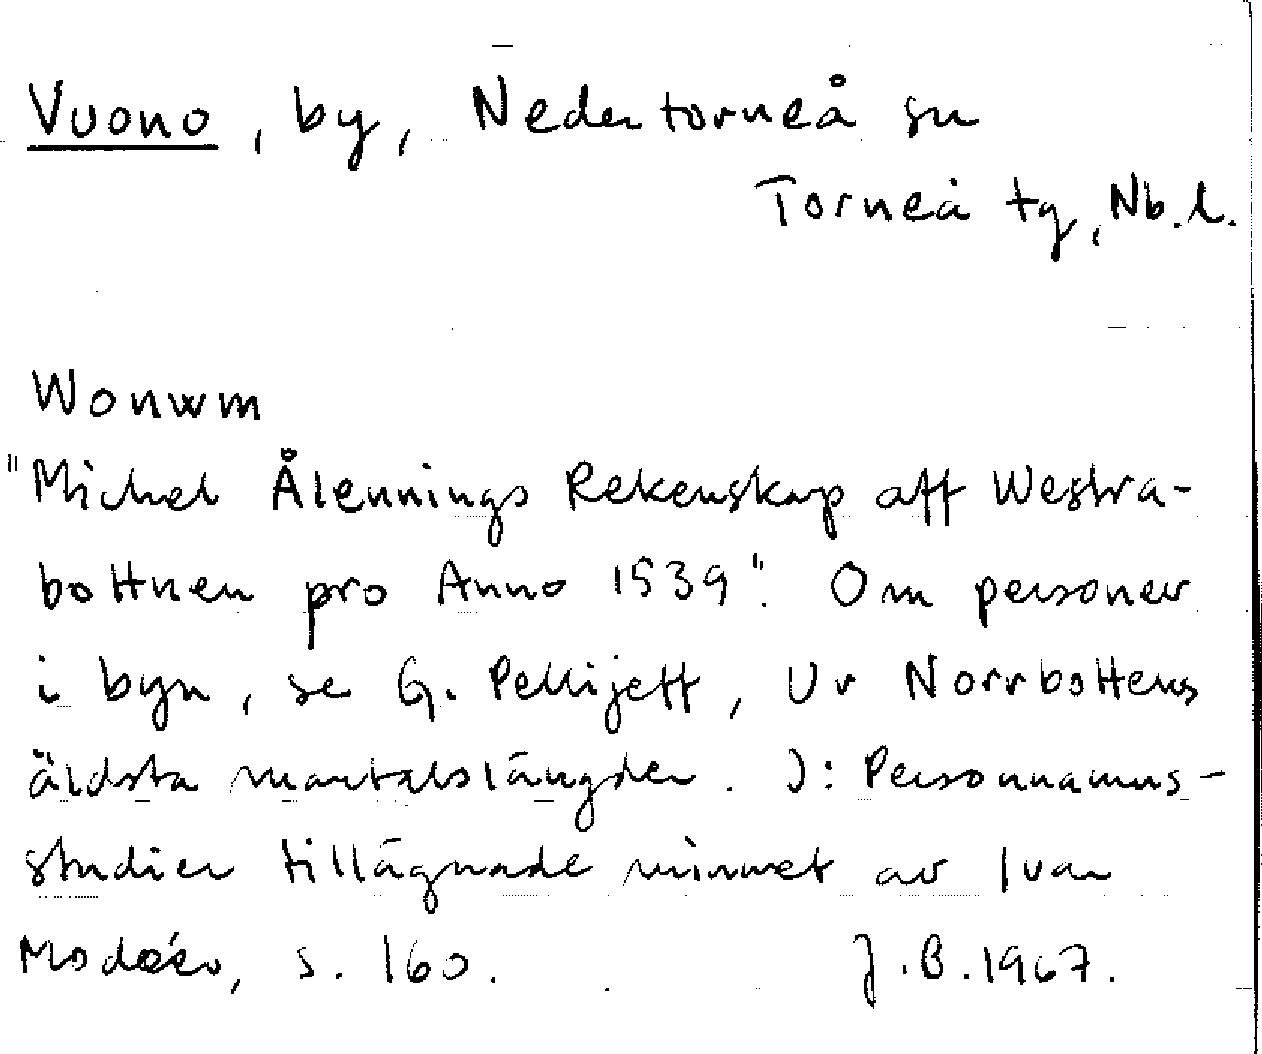 Vuono, by, Nedertorneå sn
Torneå tg, Nb. l.
Wonwm
"Michel Ålennings Rekenskap aff Westra-
bottnen pro Anno 1539". Om personer
i byn, se G. Pellijeff, Ur Norrbottens
äldsta mantalslängder. I: Personnamns-
studier tillägnade minnet av Ivar
Modéer, s. 160. J.B. 1967.